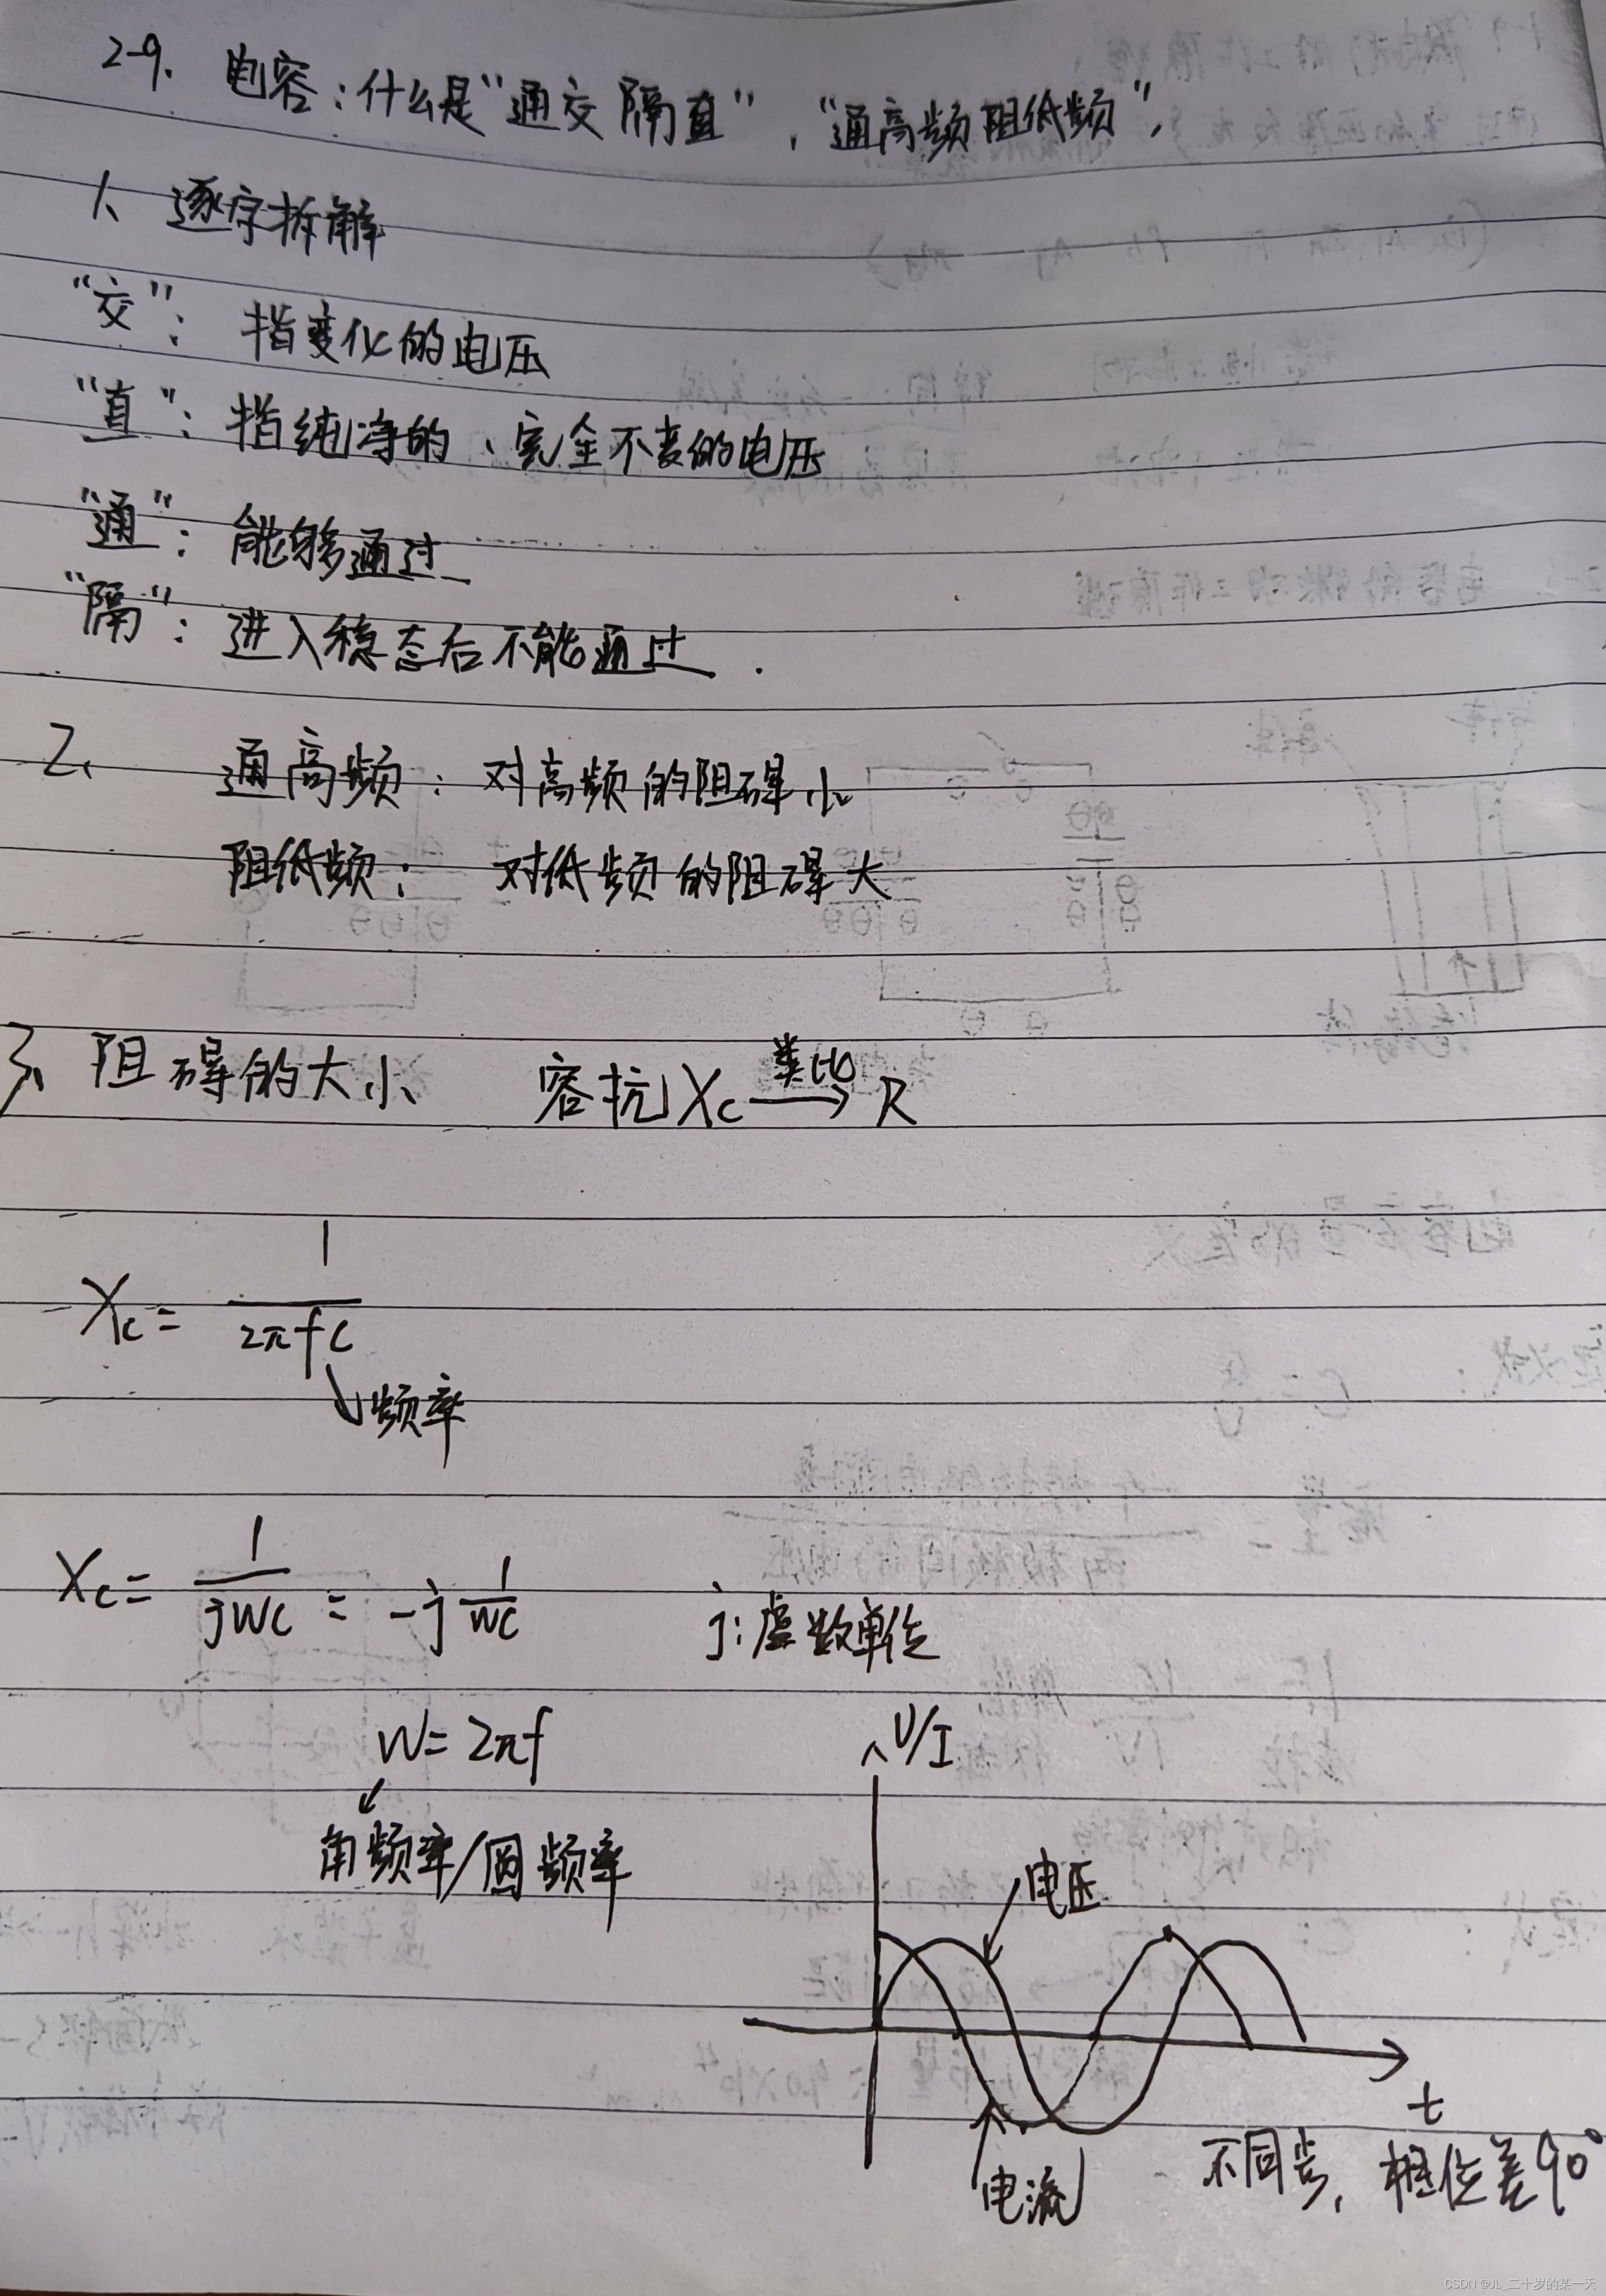 2-9. 电容：什么是“通交隔直”，“通高频阻低频”，
1、逐字拆解
“交”：指变化的电压
“直”：指纯净的、完全不变的电压
“通”：能够通过
“隔”：进入稳态后不能通过.
2、通高频：对高频的阻碍小
阻低频：对低频的阻碍大
3、阻碍的大小 容抗Xc 类比→ R
Xc = 1/(2πfc)
频率
Xc = 1/(jwc) = -j 1/(wc) j:虚数单位
w=2πf
角频率/圆频率
U/I
电压
t
电流
不同步，相位差90°
CSDN @JL_二十岁的某一天